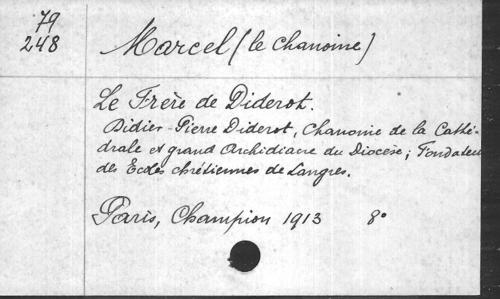 79
248
Marcel (le chanoine)
Le Frère de Diderot.
Didier-Pierre Diderot, Chanoine de la Cathé-
drale et grand Archidiacre du Diocèse; Fondateu
des Ecoles chrétiennes de Langres.
Paris, Champion 1913 8°